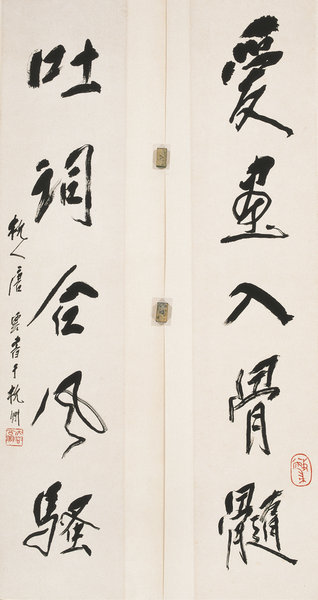 愛畫入骨髓
吐詞合風騷
杭人唐雲書于杭州